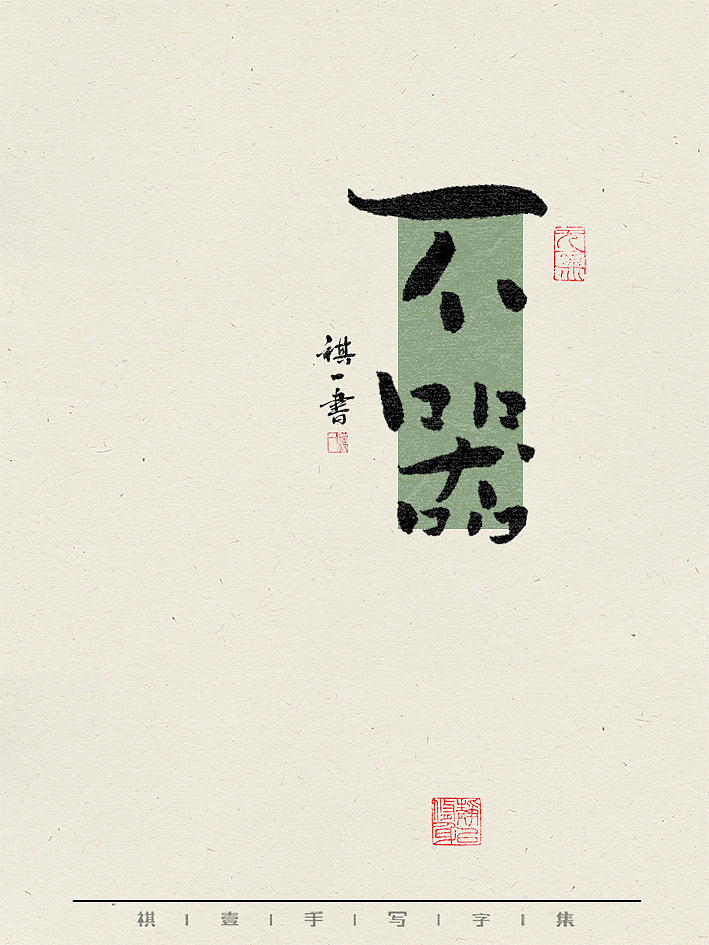 不器
祺一書
祺 | 壹 | 手 | 写 | 字 | 集